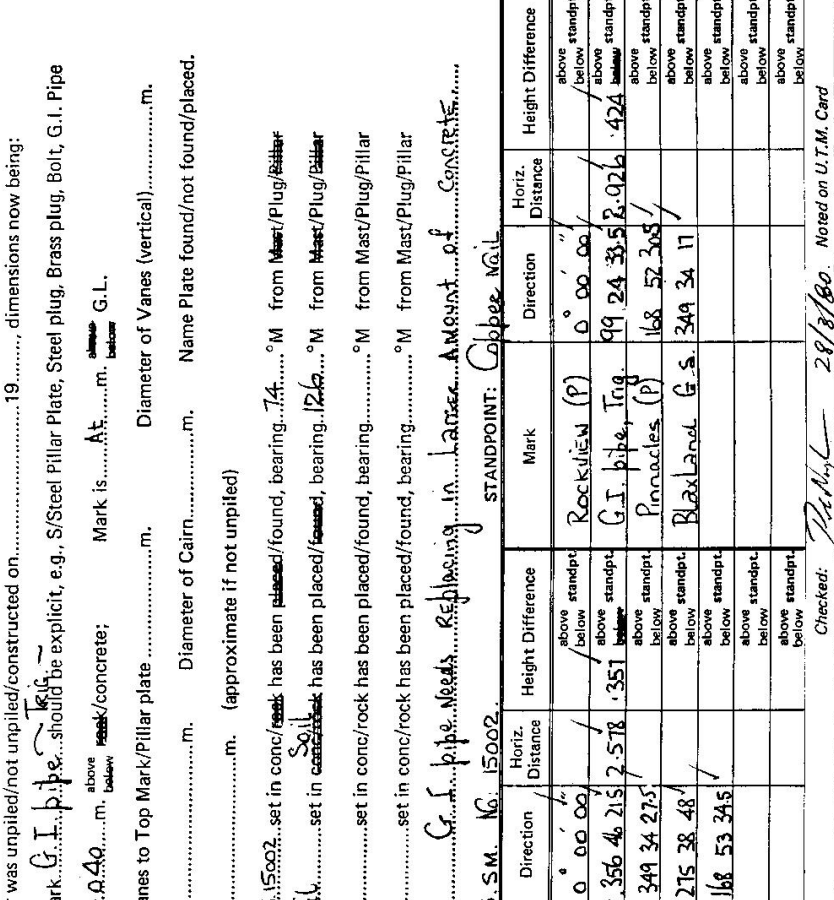 was unpiled/not unpiled/constructed on..............................19........., dimensions now being:
ark. G.I. pipe ~ TRIG ~ should be explicit, e.g., S/Steel Pillar Plate, Steel plug, Brass plug, Bolt, G.I. Pipe
.040 m. above below rock/concrete; Mark is At m. above below G.L.
anes to Top Mark/Pillar plate ....................m. Diameter of Vanes (vertical)....................m.
....................m. Diameter of Cairn....................m. Name Plate found/not found/placed.
....................m. (approximate if not unpiled)
15002 set in conc/rock has been placed/found, bearing 74 °M from Mast/Plug/Pillar
Soil
set in conc/rock has been placed/found, bearing 126 °M from Mast/Plug/Pillar
set in conc/rock has been placed/found, bearing............°M from Mast/Plug/Pillar
set in conc/rock has been placed/found, bearing............°M from Mast/Plug/Pillar
G.I. pipe Needs Replacing in Larger Amount of Concrete
.S.M. No. 15002. STANDPOINT: Copper Nail
Direction Horiz. Distance Height Difference Mark Direction Horiz. Distance Height Difference
0° 00' 00" above standpt. below Rockview (P) 0° 00' 00" above standpt. below
356 46 21.5 2.578 .357 above standpt. below G.I. pipe, Trig. 99 24 33.5 2.926 .424 above standpt. below
349 34 27.5 above standpt. below Pinnacles (P) 168 52 30.5 above standpt. below
275 38 48 above standpt. below Blaxland G.S. 349 34 17 above standpt. below
168 53 34.5 above standpt. below above standpt. below
above standpt. below above standpt. below
above standpt. below above standpt. below
Checked: 28/3/80. Noted on U.T.M. Card